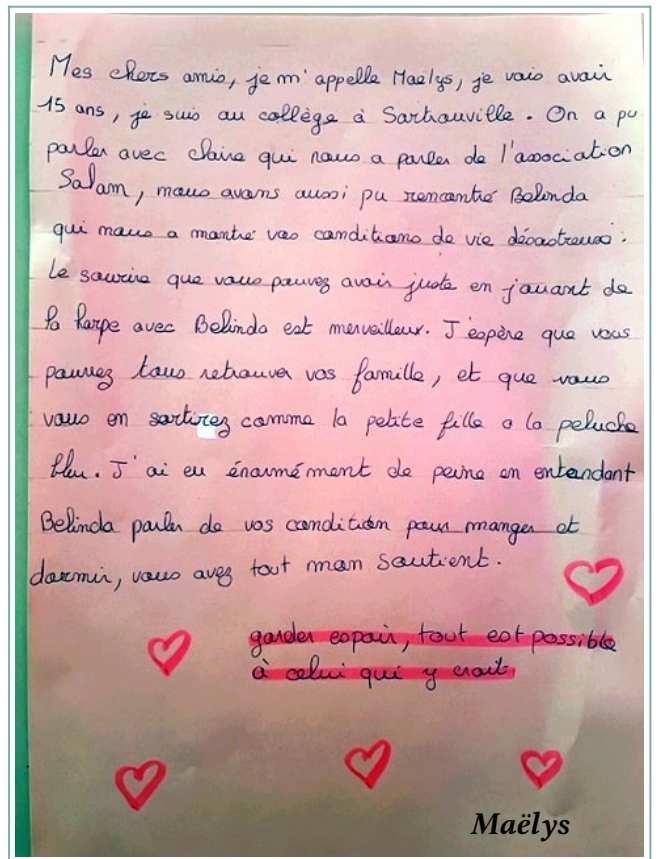 Mes chers amis, je m'appelle Maëlys, je vais avoir
15 ans, je suis au collège à Sartrouville. On a pu
parler avec claire qui nous a parler de l'association
Salam, nous avons aussi pu rencontré Belinda
qui nous a montré vos conditions de vie désastreuse.
Le sourire que vous pouvez avoir juste en jouant de
la harpe avec Belinda est merveilleux. J'espère que vous
pourrez tous retrouver vos famille, et que vous
vous en sortirez comme la petite fille a la peluche
bleu. J'ai eu énormément de peine en entendant
Belinda parler de vos condition pour manger et
dormir, vous avez tout mon soutient.
garder espoir, tout est possible
à celui qui y croit.
Maëlys